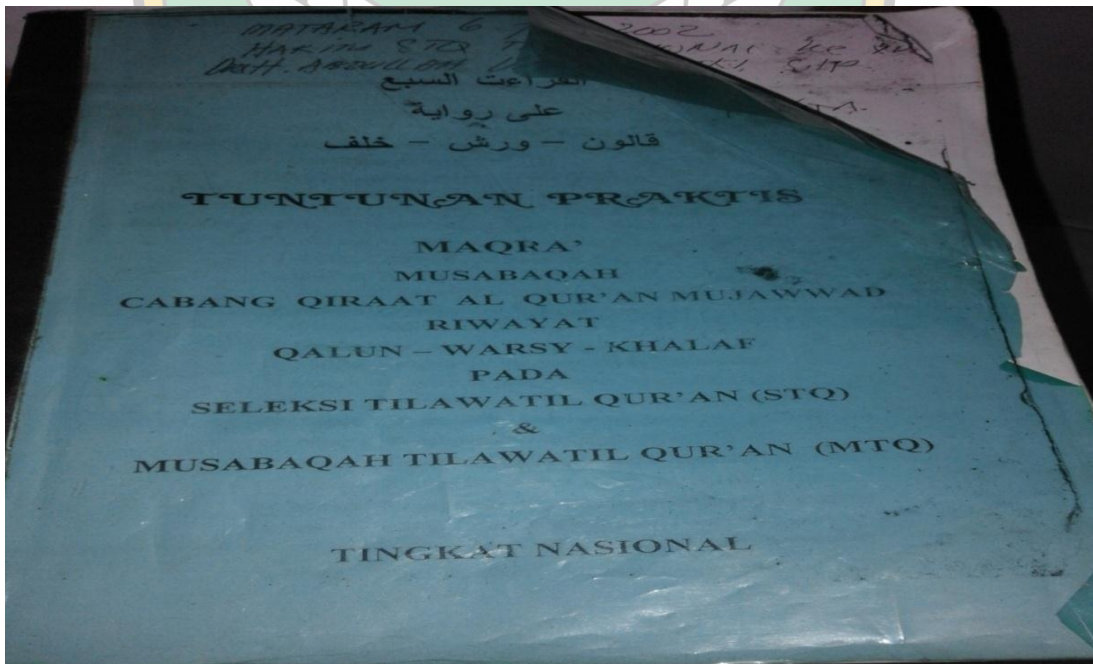 MATARAM 6 2002
HAKIM STQ
ABDULLAH
القراءت السبع
على رواية
قالون – ورش – خلف
TUNTUNAN PRAKTIS
MAQRA'
MUSABAQAH
CABANG QIRAAT AL QUR'AN MUJAWWAD
RIWAYAT
QALUN – WARSY - KHALAF
PADA
SELEKSI TILAWATIL QUR'AN (STQ)
&
MUSABAQAH TILAWATIL QUR'AN (MTQ)
TINGKAT NASIONAL